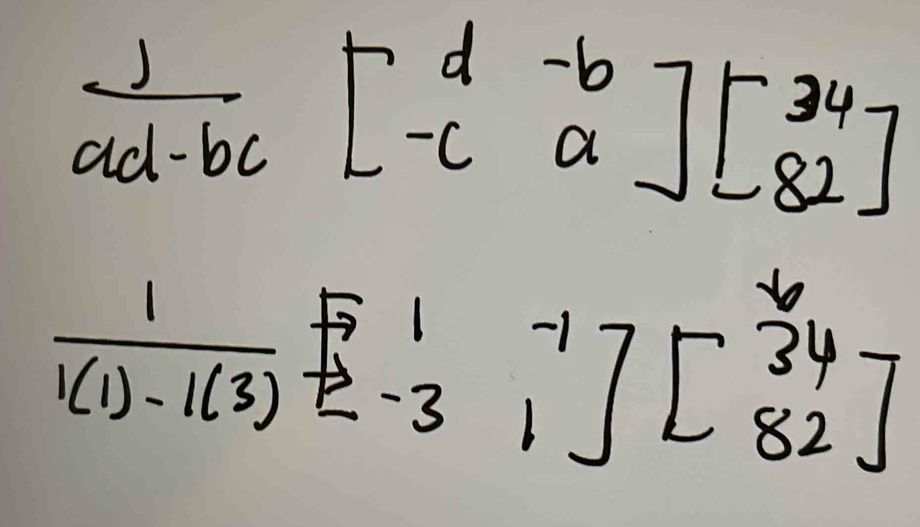 1/(ad-bc) [d -b; -c a] [34; 82]
1/(1(1)-1(3)) [→ 1 -1; → -3 1] [↓ 34; 82]